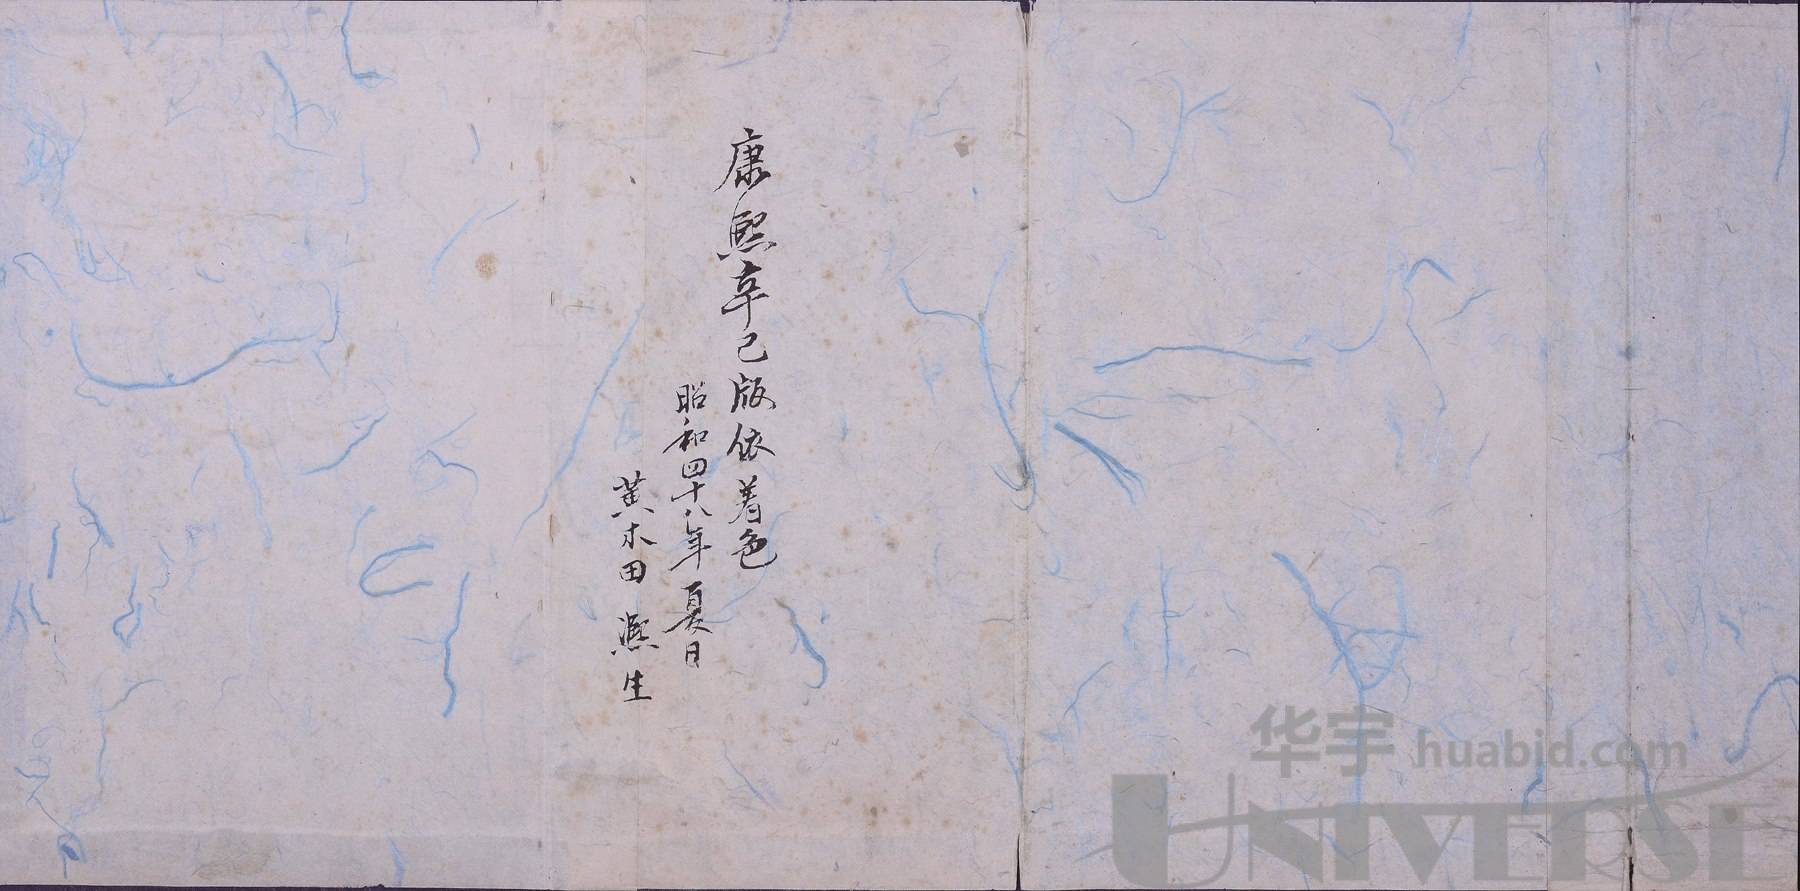 康熙辛己版依着色
昭和四十八年夏日
黄木田熈生
华宇 huabid.com
UNIVERSE